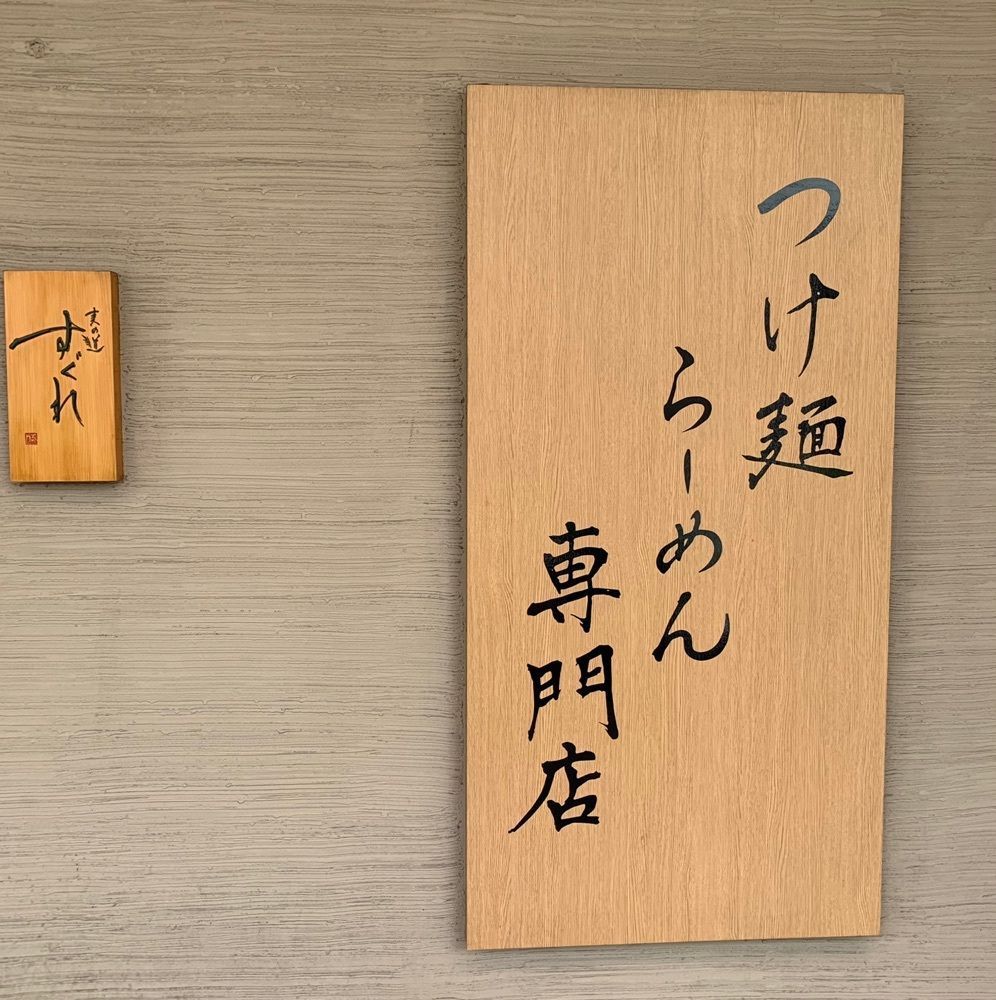 つけ麺
らーめん
専門店
麦の道
すぐれ